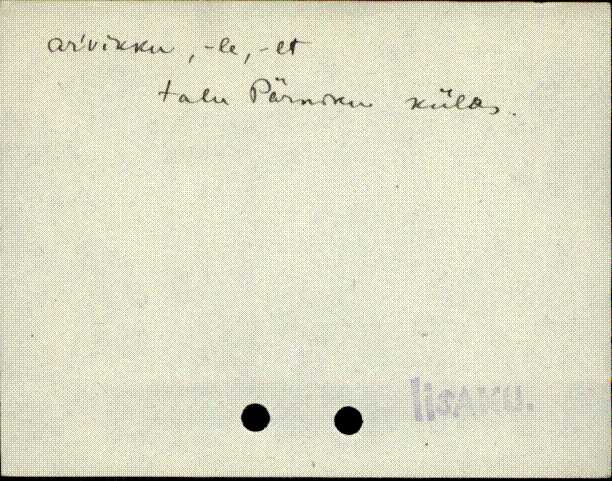 ar'vikku, -le, -et
talu Pärniku külas.
IisAKU.